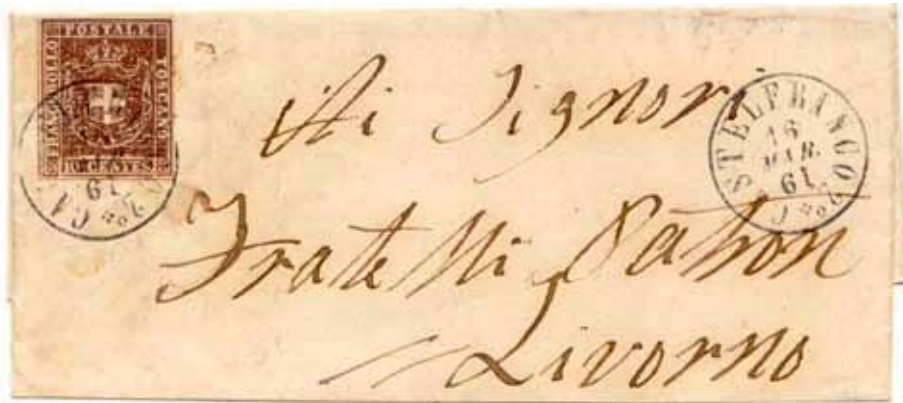 FRANCOBOLLO
POSTALE
TOSCANO
10 CENTES
61
CA
STELFRANCO
16
MAR.
61
Ai Signori
Fratelli Patron
Livorno